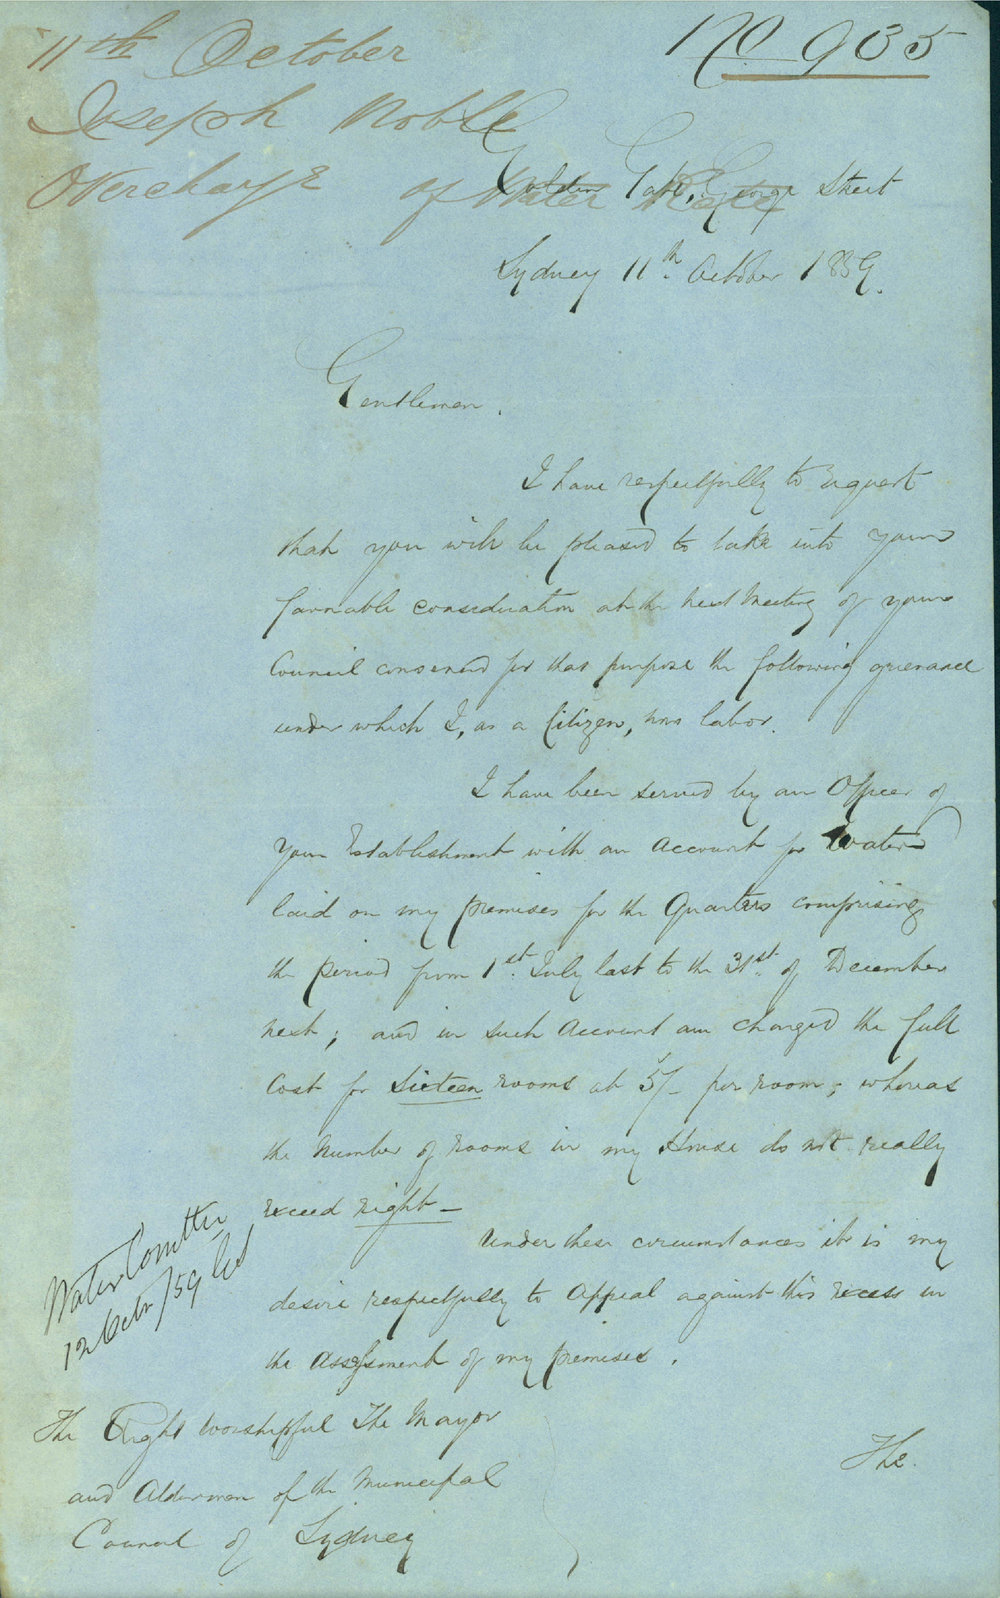 11th October
No 935
Joseph Noble
Overcharge of Water Rate
Golden Gate, George Street
Sydney 11th October 1859.
Gentlemen,
I have respectfully to request
that you will be pleased to take into your
favorable consideration at the next Meeting of your
Council convened for that purpose the following grievance
under which I, as a Citizen, now labor.
I have been served by an Officer of
your Establishment with an Account for Water
laid on my premises for the Quarters comprising
the period from 1st July last to the 31st of December
next; and in such Account am charged the full
Cost for Sixteen rooms at 5/- per room; whereas
the Number of rooms in my House do not really
exceed eight —
Under these circumstances it is my
desire respectfully to Appeal against this excess in
the Assessment of my premises.
Water Comttee
12 Octr/59
The Right Worshipful The Mayor
and Aldermen of the Municipal
Council of Sydney
The.